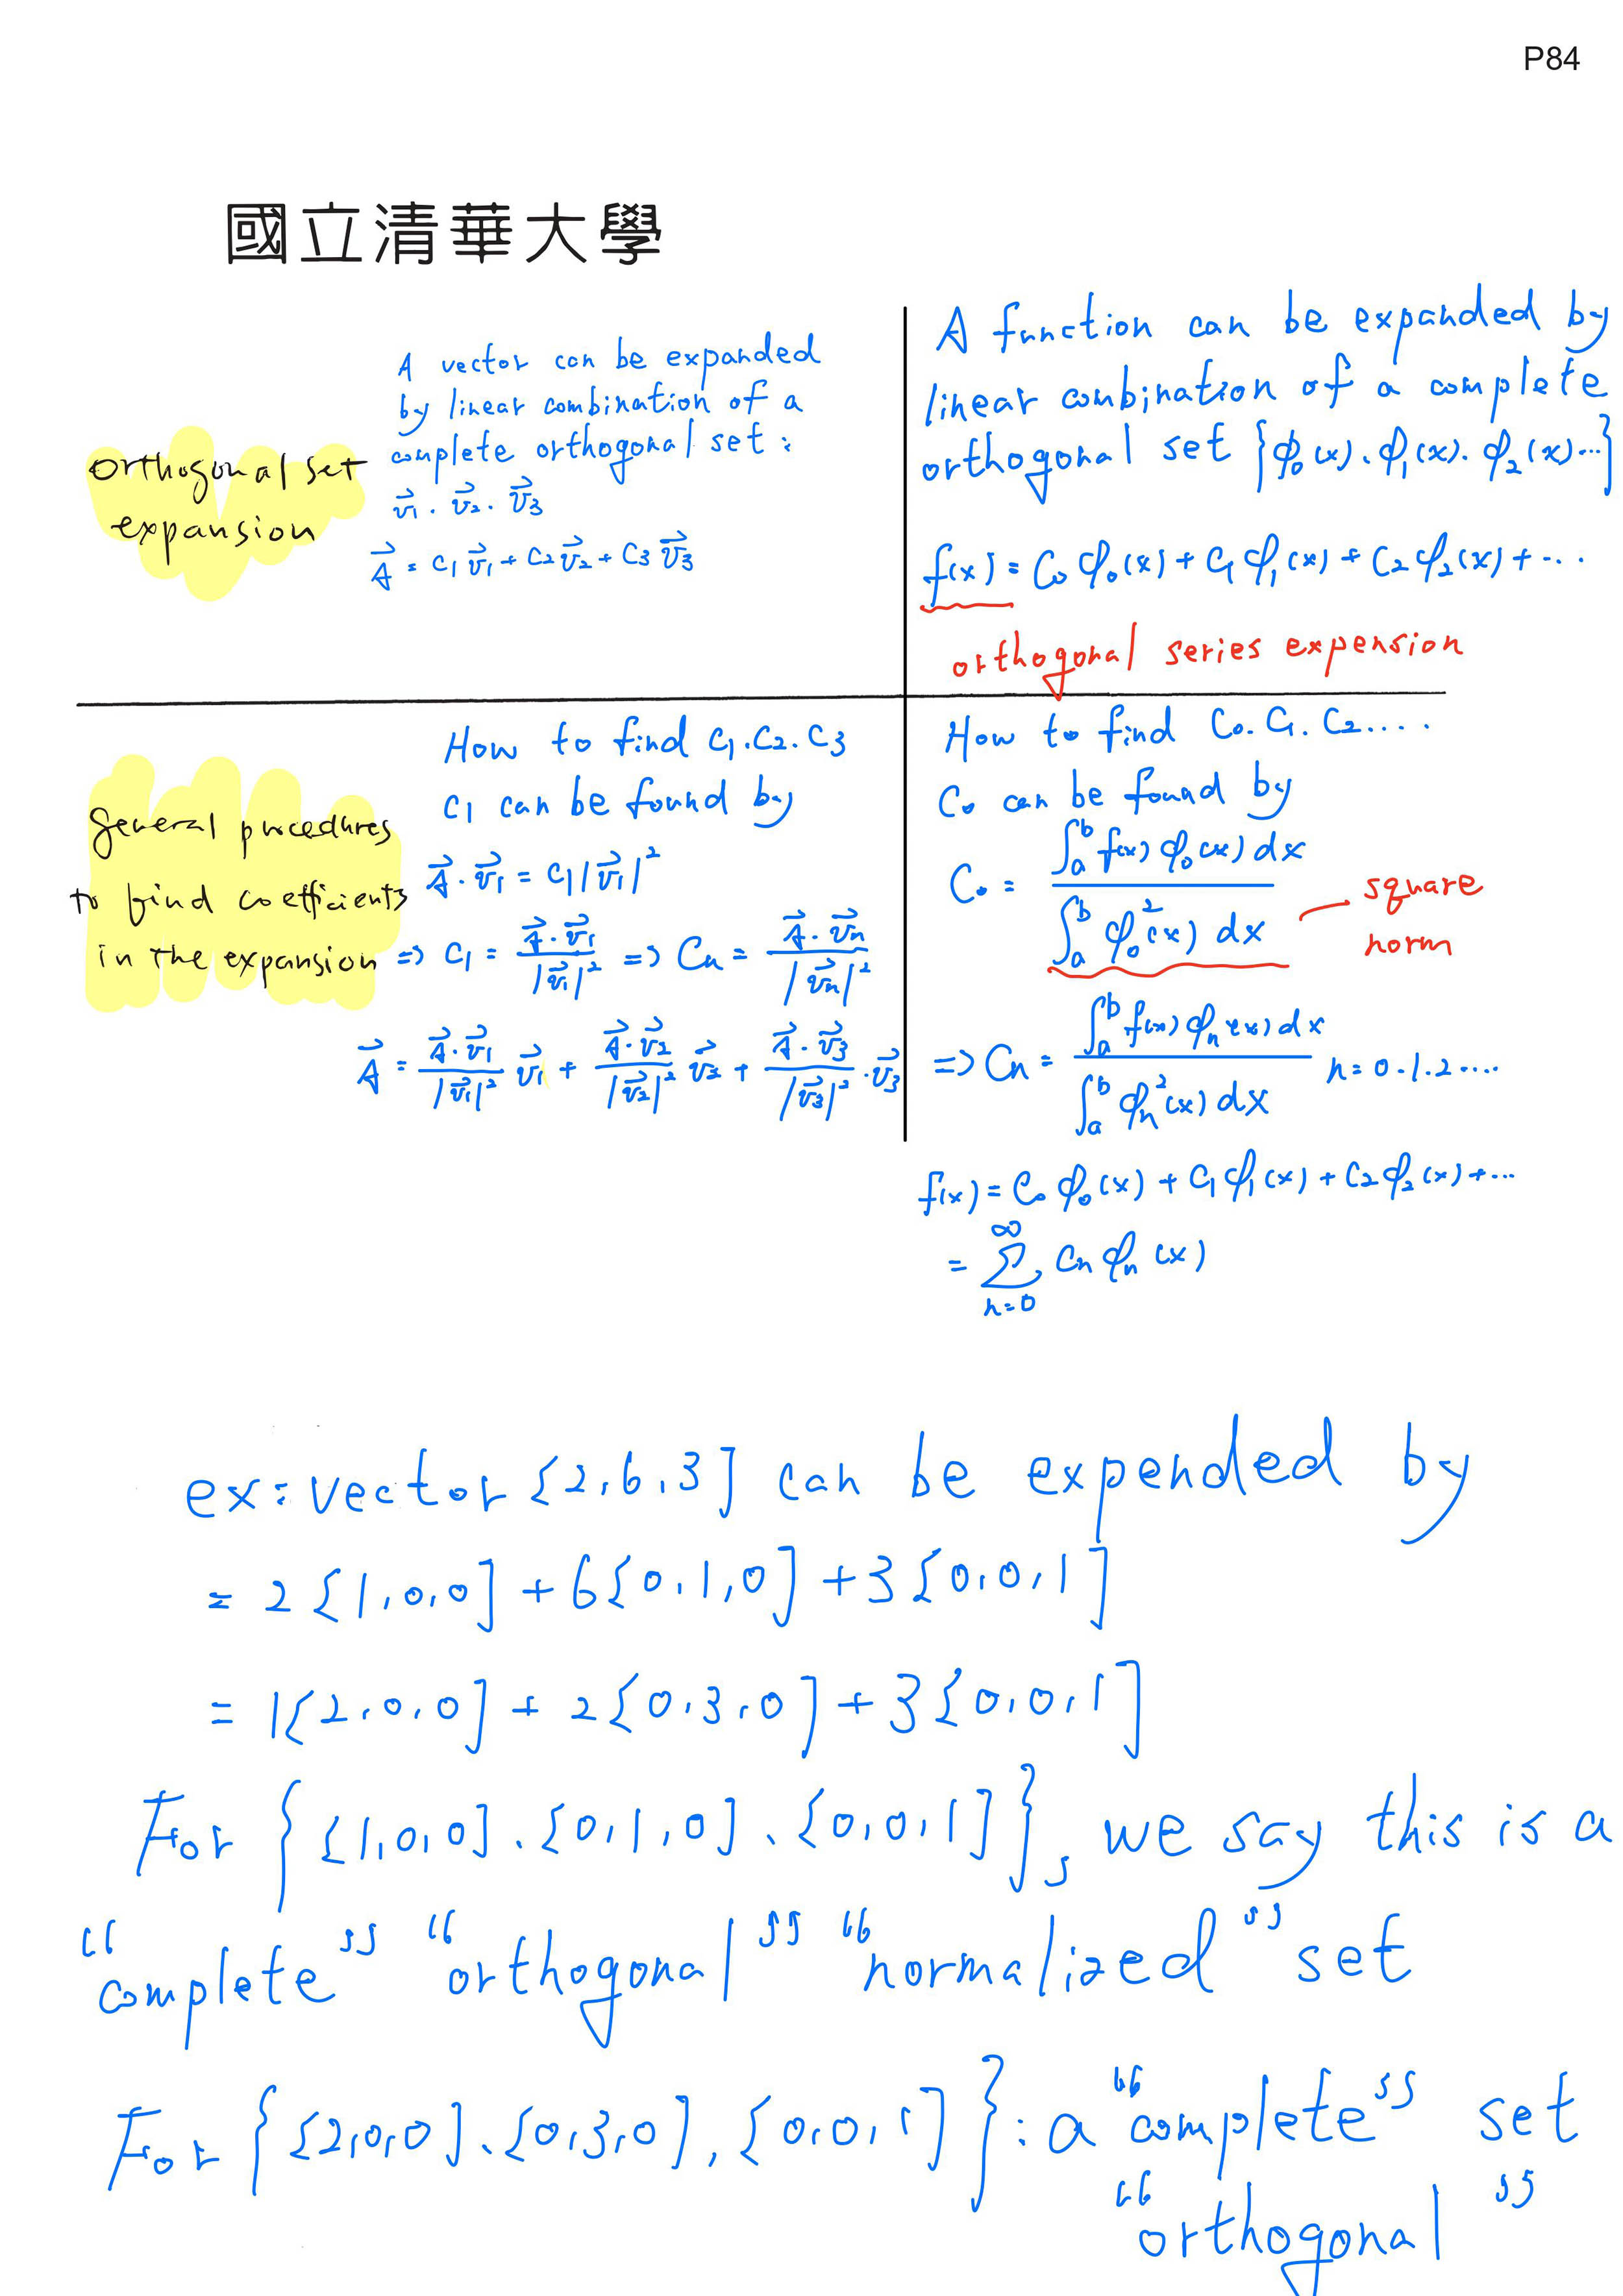 P84
國立清華大學
orthogonal set
expansion
A vector can be expanded
by linear combination of a
complete orthogonal set :
v⃗1 . v⃗2 . v⃗3
A⃗ = c1 v⃗1 + c2 v⃗2 + c3 v⃗3
A function can be expanded by
linear combination of a complete
orthogonal set {ϕ0(x). ϕ1(x). ϕ2(x)...}
f(x) = C0 ϕ0(x) + C1 ϕ1(x) + C2 ϕ2(x) + ...
orthogonal series expension
general procedures
to find coefficients
in the expansion
How to find c1.c2.c3
c1 can be found by
A⃗ · v⃗1 = c1 |v⃗1|²
=> c1 = A⃗ · v⃗1 / |v⃗1|² => Cn = A⃗ · v⃗n / |v⃗n|²
A⃗ = A⃗ · v⃗1 / |v⃗1|² v⃗1 + A⃗ · v⃗2 / |v⃗2|² v⃗2 + A⃗ · v⃗3 / |v⃗3|² · v⃗3
How to find C0. C1. C2....
C0 can be found by
C0 = ∫_a^b f(x) ϕ0(x) dx / ∫_a^b ϕ0²(x) dx
square
norm
=> Cn = ∫_a^b f(x) ϕn(x) dx / ∫_a^b ϕn²(x) dx n = 0.1.2....
f(x) = C0 ϕ0(x) + C1 ϕ1(x) + C2 ϕ2(x) + ...
= ∑_{n=0}^∞ Cn ϕn(x)
ex: vector [2,6,3] can be expended by
= 2[1,0,0] + 6[0,1,0] + 3[0,0,1]
= 1[2,0,0] + 2[0,3,0] + 3[0,0,1]
For {[1,0,0]、[0,1,0]、[0,0,1]}, we say this is a
“complete” “orthogonal” “normalized” set
For {[2,0,0]、[0,3,0], [0,0,1]}: a “complete” set
“orthogonal”